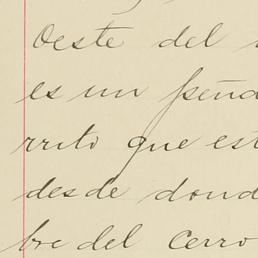 Oeste del
es un peñas
rrito que est
desde dond
bre del Cerro